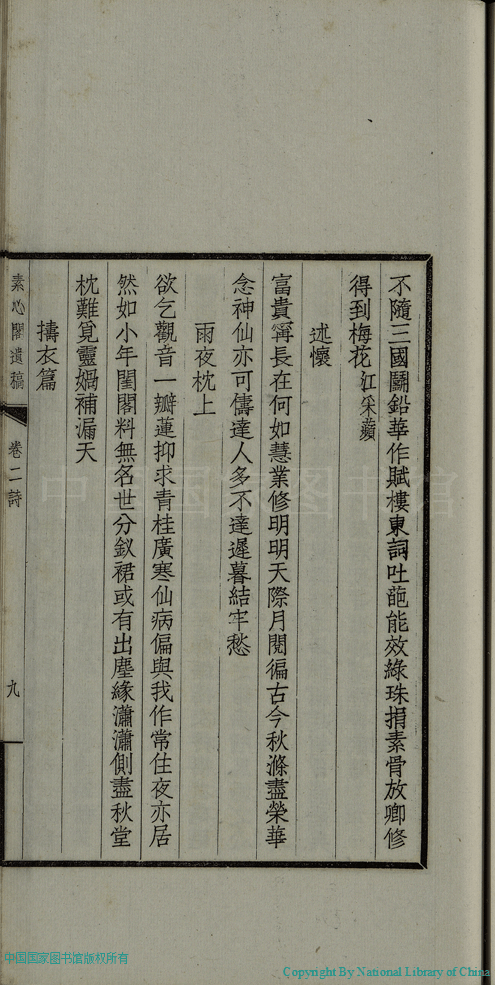 不隨三國鬭鉛華作賦樓東詞吐葩能效綠珠捐素骨放卿修
得到梅花江采蘋
述懷
富貴寗長在何如慧業修明明天際月閱徧古今秋滌盡榮華
念神仙亦可儔達人多不達遲暮結牢愁
雨夜枕上
欲乞觀音一瓣蓮抑求青桂廣寒仙病偏與我作常住夜亦居
然如小年閨閣料無名世分釵裙或有出塵緣瀟瀟側盡秋堂
枕難覓靈媧補漏天
擣衣篇
素心閣遺稿
卷二詩
九
中国国家图书馆
中国国家图书馆版权所有
Copyright By National Library of China